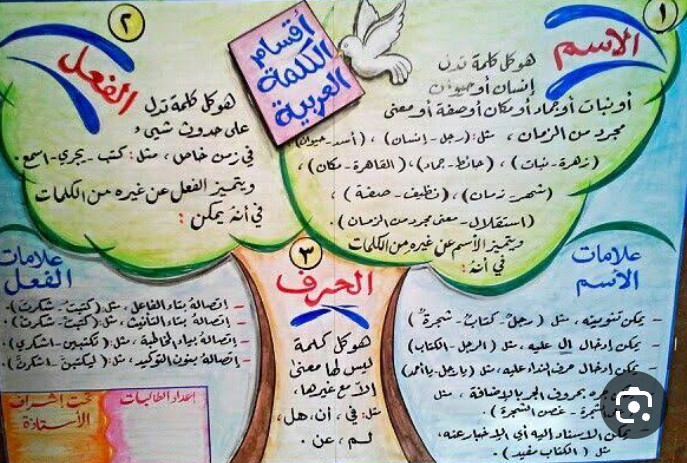 أقسام
الكلمة
العربية
١
الاسم
هو كل كلمة تدل
إنسان أو حيوان
أو نبات أو جماد أو مكان أو صفة أو معنى
مجرد من الزمان ، مثل: (رجل - إنسان) ، (أسد - حيوان)
(زهرة - نبات) ، (حائط - جماد) ، (القاهرة - مكان) ،
(شهر - زمان) ، (نظيف - صفة) ،
(استقلال - معنى مجرد من الزمان) .
ويتميز الأسم عن غيره من الكلمات
في أنه :
علامات
الأسم
– يمكن تنوينه ، مثل ( رجلٌ - كتابٌ - شجرةٌ )
– يمكن إدخال ال عليه ، مثل ( الرجل - الكتاب )
– يمكن إدخال حرف النداء عليه ، مثل (يا رجل - يا أحمد)
جره بحروف الجر بالإضافة ، مثل
الشجرة - غصن الشجرة ) .
يمكن الاسناد اليه أي الإخبار عنه ،
مثل ( الكتاب مفيد ) .
٢
الفعل
هو كل كلمة تدل
على حدوث شيء
في زمن خاص ، مثل : كتب - يجري - اسمع .
ويتميز الفعل عن غيره من الكلمات
في أنه يمكن :
علامات
الفعل
– إتصاله بتاء الفاعل ، مثل : (كتبتُ - شكرتُ) .
– إتصاله بتاء التأنيث ، مثل : (كتبتْ - شكرتْ) .
– إتصاله بياء المخاطبة ، مثل : (تكتبين - اشكري)
– إتصاله بنون التوكيد ، مثل : (ليكتبنّ - اشكرنّ) .
٣
الحرف
هو كل كلمة
ليس لها معنى
إلا مع غيرها ،
مثل : في ، أن ، هل ،
لم ، عن .
إعداد الطالبات
تحت إشراف
الأستاذة